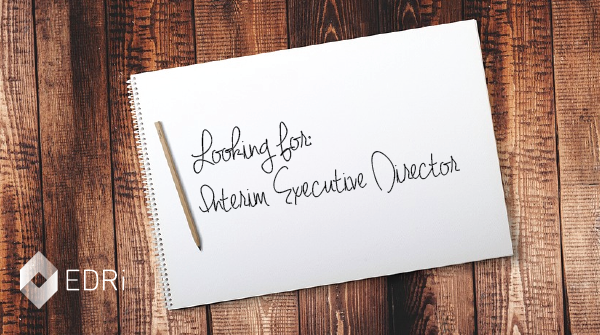 Looking for:
Interim Executive Director
EDRi